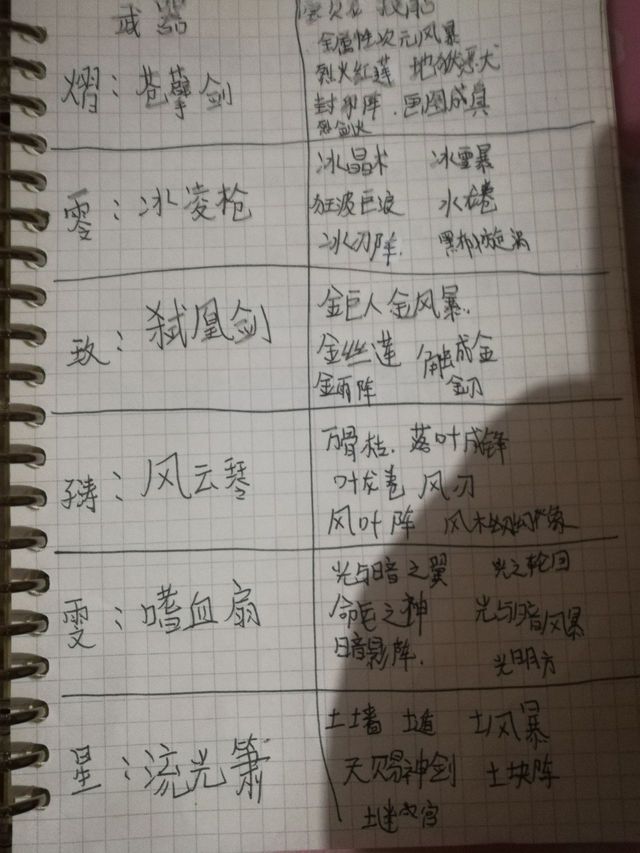 武器
技能
熠：苍擎剑
全属性次元风暴
烈火红莲 地狱
阵 画图成真
零：冰凌枪
冰晶术 冰雪暴
狂波巨浪 水卷
冰刃阵 黑 旋涡
致：弑凰剑
金巨人 金风暴
金丝莲 触成金
金雨阵 金刃
风云琴
万骨枯 落叶成锋
叶龙卷 风刃
风叶阵 风木 象
雯：嗜血扇
光与暗之翼 光之轮回
命运之神 光与暗风暴
暗影阵 光明方
星：流光箫
土墙 土遁 土风暴
天赐神剑 土块阵
土迷宫